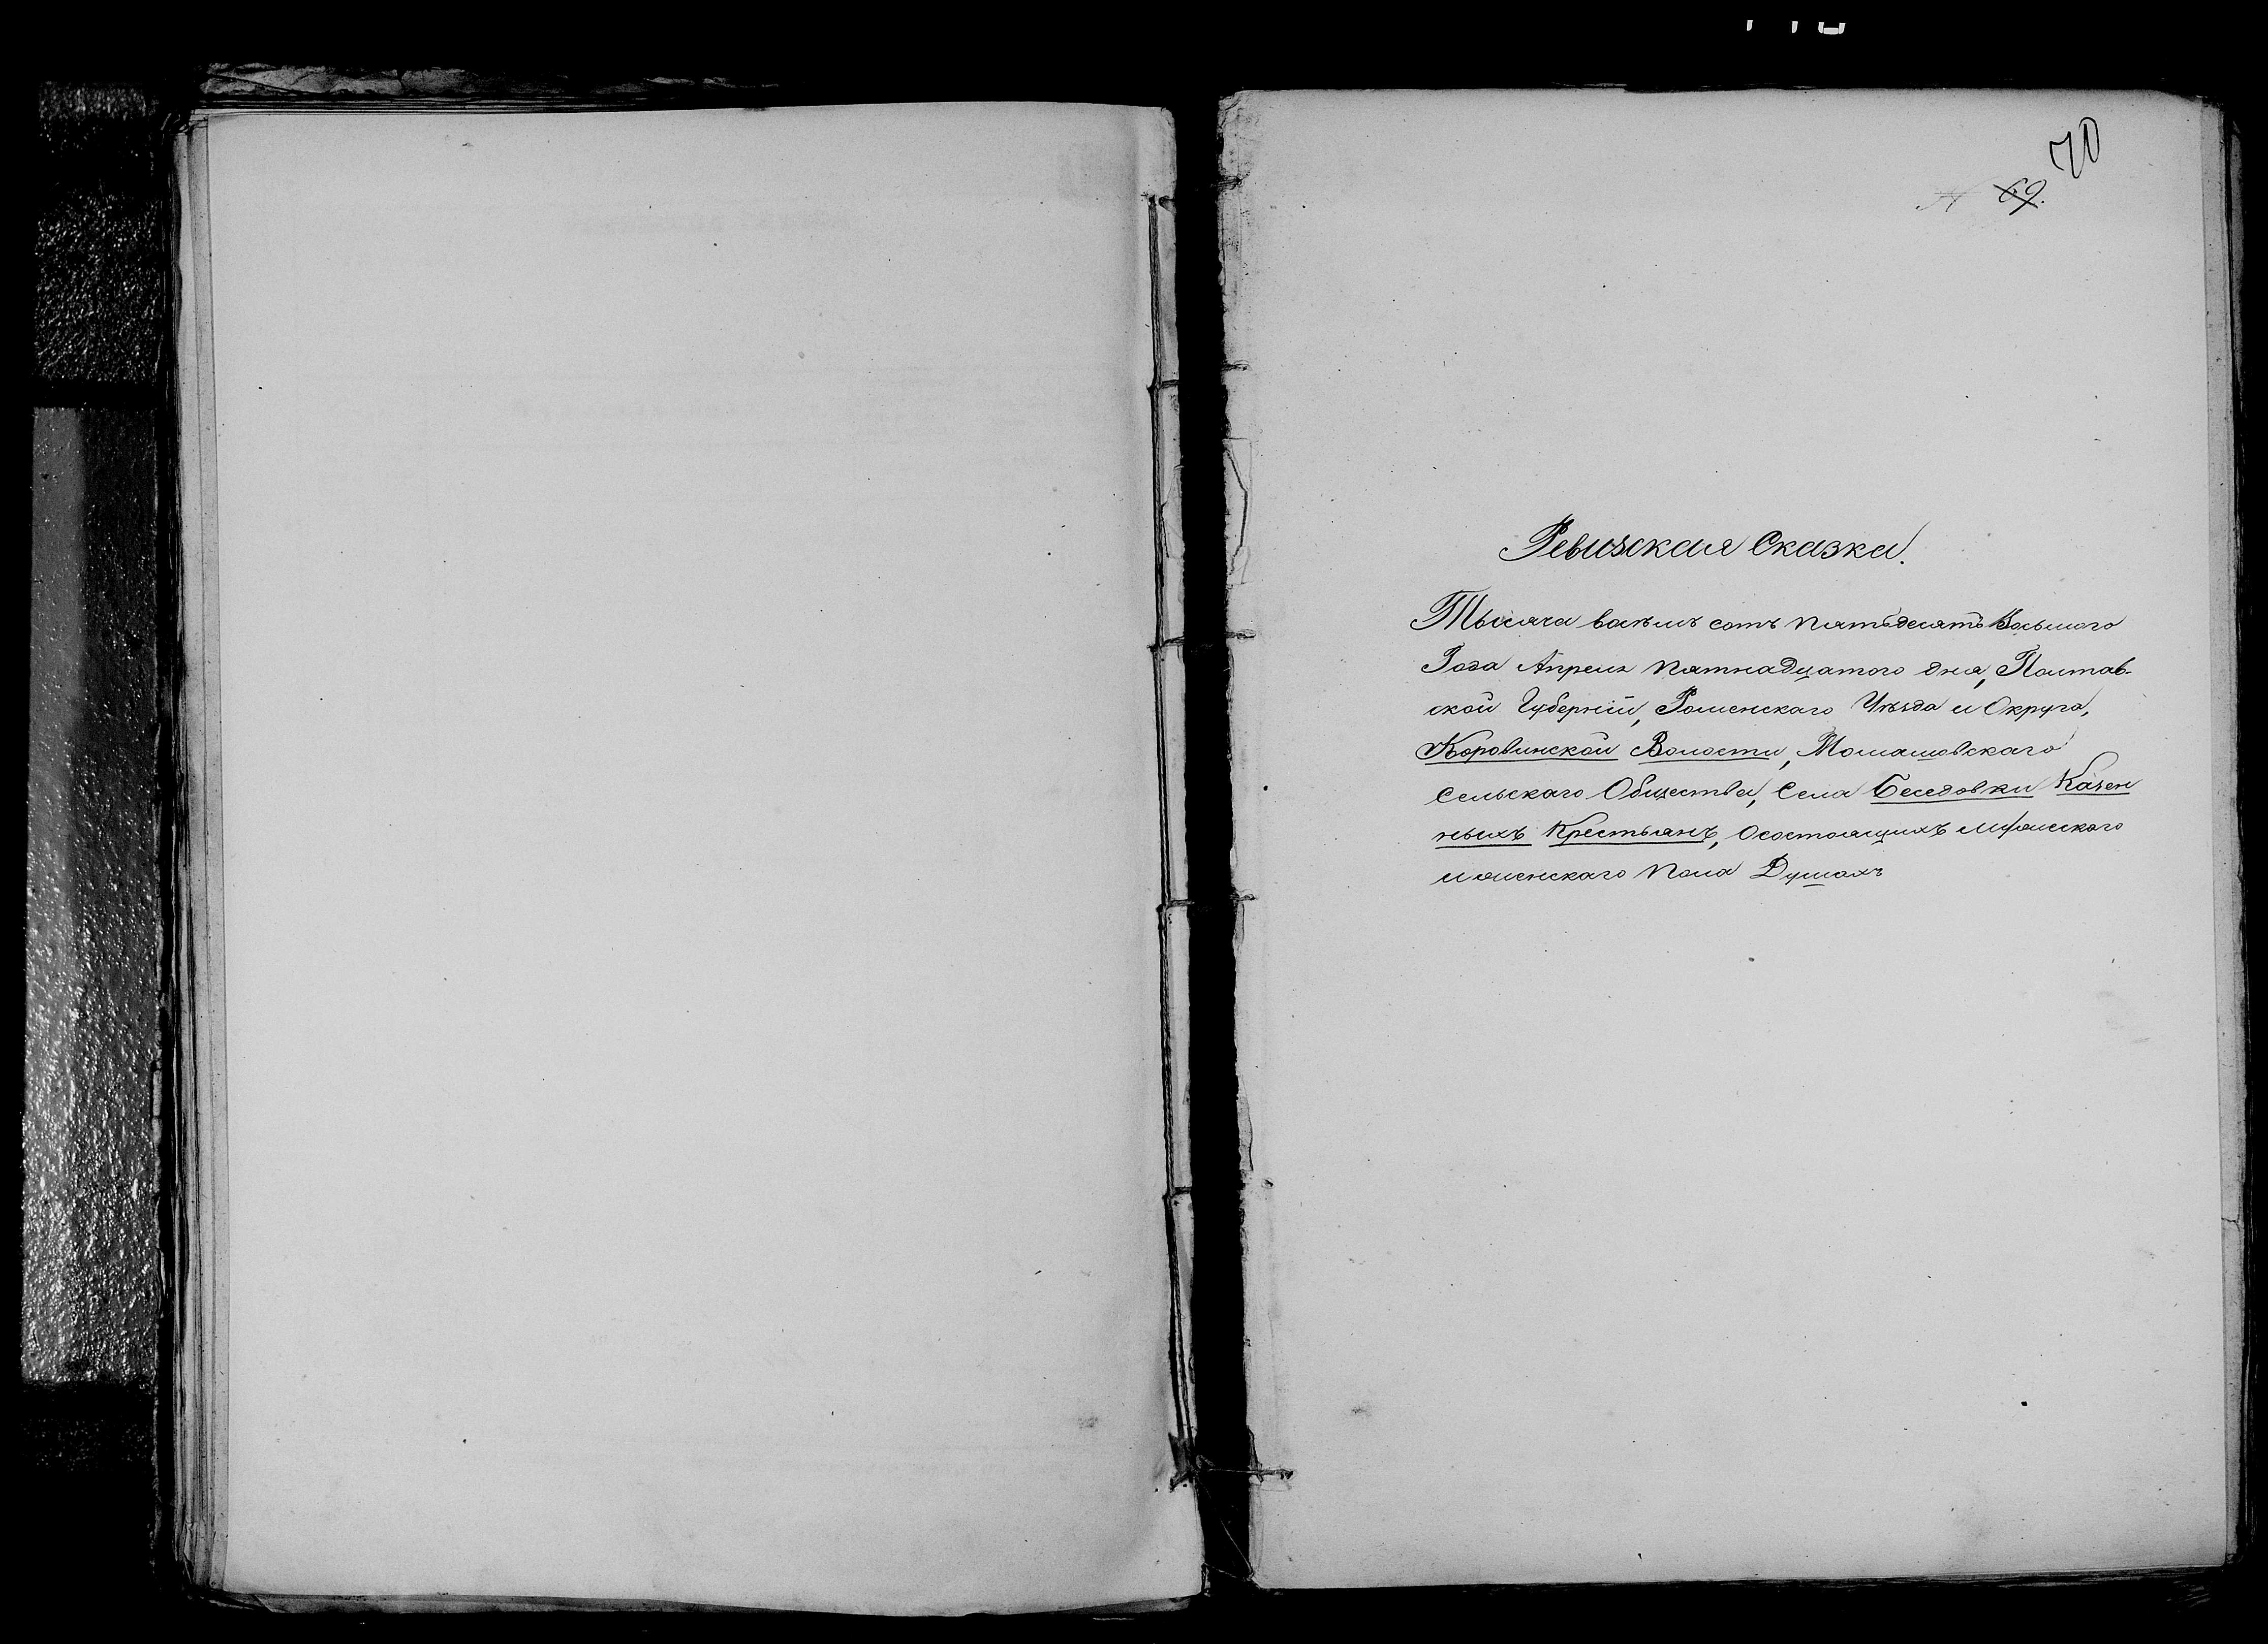 70
69.
Ревизская Сказка.
Тысяча восемь сотъ пятьдесятъ Восьмого
Года Апреля пятнадцатого дня, Полтав-
ской Губерніи, Роменскаго Уѣзда и Округа,
Коровинской Волости,
Сельскаго Общества, Села Беседовки Казен
ныхъ Крестьянъ, Осостоящихъ мужескаго
и женскаго пола Душахъ